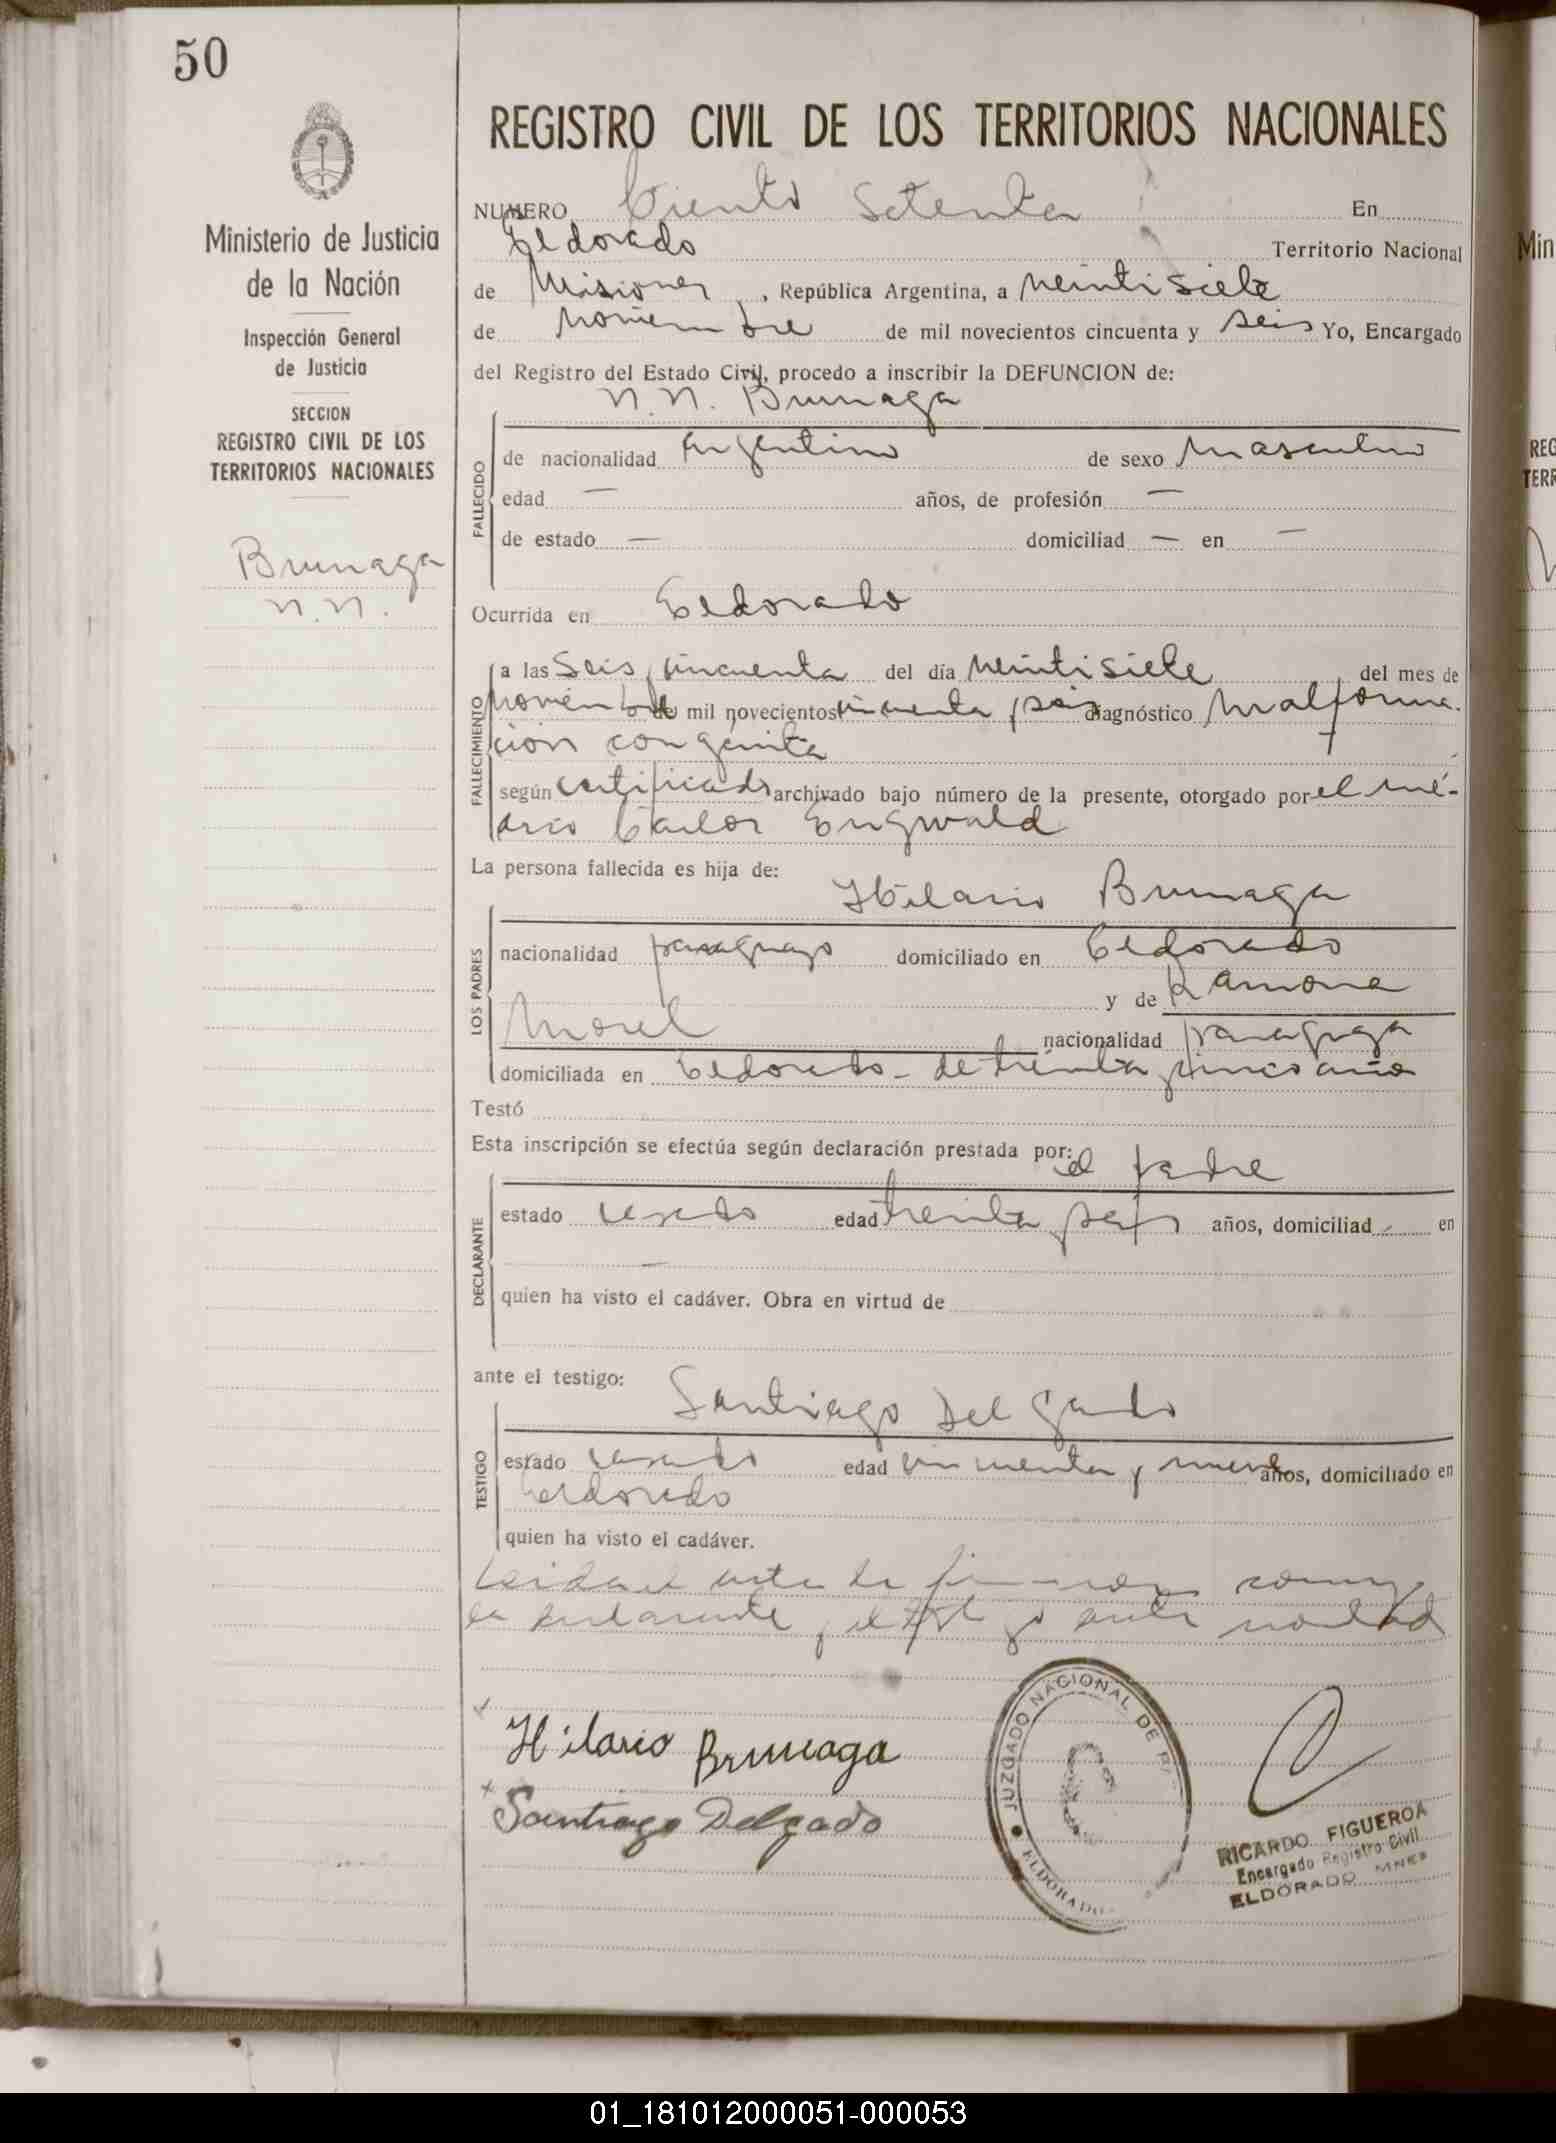 50
Ministerio de Justicia
de la Nación
Inspección General
de Justicia
SECCION
REGISTRO CIVIL DE LOS
TERRITORIOS NACIONALES
Brunaga
N.N.
REGISTRO CIVIL DE LOS TERRITORIOS NACIONALES
NUMERO Ciento Setenta En
Eldorado Territorio Nacional
de Misiones, República Argentina, a veintisiete
de noviembre de mil novecientos cincuenta y seis Yo, Encargado
del Registro del Estado Civil, procedo a inscribir la DEFUNCION de:
N.N. Brunaga
FALLECIDO
de nacionalidad Argentino de sexo Masculino
edad — años, de profesión —
de estado — domiciliad — en —
Ocurrida en Eldorado
FALLECIMIENTO
a las Seis y cincuenta del día veintisiete del mes de
noviembre de mil novecientos cincuenta y seis diagnóstico Malforma-
ción congénita
según certificado archivado bajo número de la presente, otorgado por el mé-
dico Carlos
La persona fallecida es hija de:
Hilario Brunaga
LOS PADRES
nacionalidad paraguayo domiciliado en Eldorado
y de Ramona
Morel nacionalidad paraguaya
domiciliada en Eldorado - de treinta y cinco años
Testó
Esta inscripción se efectúa según declaración prestada por: el padre
DECLARANTE
estado casado edad treinta y seis años, domiciliad — en
—
quien ha visto el cadáver. Obra en virtud de
ante el testigo:
Santiago Delgado
TESTIGO
estado casado edad cincuenta y nueve años, domiciliado en
Eldorado
quien ha visto el cadáver.
Leida el acta la firman conmigo
el declarante y el testigo
Hilario Brunaga
Santiago Delgado
JUZGADO NACIONAL DE
ELDORADO
RICARDO FIGUEROA
Encargado Registro Civil
ELDORADO MNES
Min
REG
TERR
01_181012000051-000053